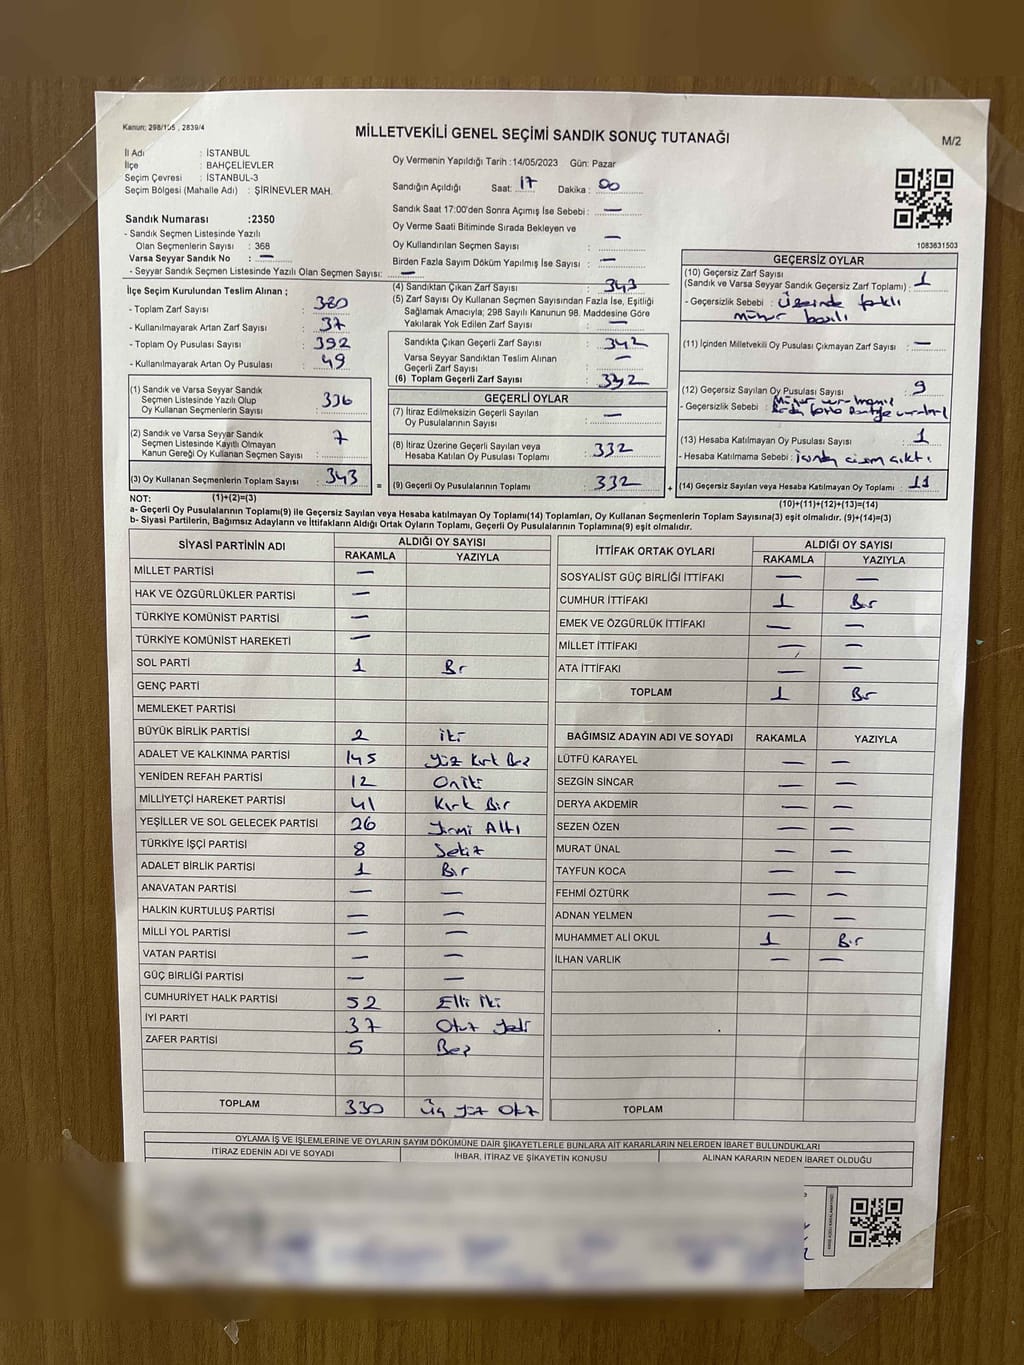 Kanun; 298/105 , 2839/4
MİLLETVEKİLİ GENEL SEÇİMİ SANDIK SONUÇ TUTANAĞI
M/2
İl Adı : İSTANBUL
İlçe : BAHÇELİEVLER
Seçim Çevresi : İSTANBUL-3
Seçim Bölgesi (Mahalle Adı) : ŞİRİNEVLER MAH.
Sandık Numarası :2350
- Sandık Seçmen Listesinde Yazılı
Olan Seçmenlerin Sayısı : 368
Varsa Seyyar Sandık No : —
- Seyyar Sandık Seçmen Listesinde Yazılı Olan Seçmen Sayısı: —
Oy Vermenin Yapıldığı Tarih :14/05/2023 Gün: Pazar
Sandığın Açıldığı Saat: 17 Dakika : 00
Sandık Saat 17:00'den Sonra Açımış İse Sebebi : —
Oy Verme Saati Bitiminde Sırada Bekleyen ve
Oy Kullandırılan Seçmen Sayısı : —
Birden Fazla Sayım Döküm Yapılmış İse Sayısı : —
1083631503
İlçe Seçim Kurulundan Teslim Alınan ;
- Toplam Zarf Sayısı : 380
- Kullanılmayarak Artan Zarf Sayısı : 37
- Toplam Oy Pusulası Sayısı : 392
- Kullanılmayarak Artan Oy Pusulası : 49
(1) Sandık ve Varsa Seyyar Sandık
Seçmen Listesinde Yazılı Olup
Oy Kullanan Seçmenlerin Sayısı : 336
(2) Sandık ve Varsa Seyyar Sandık
Seçmen Listesinde Kayıtlı Olmayan
Kanun Gereği Oy Kullanan Seçmen Sayısı : 7
(3) Oy Kullanan Seçmenlerin Toplam Sayısı : 343 =
(4) Sandıktan Çıkan Zarf Sayısı : 343
(5) Zarf Sayısı Oy Kullanan Seçmen Sayısından Fazla İse, Eşitliği
Sağlamak Amacıyla; 298 Sayılı Kanunun 98. Maddesine Göre
Yakılarak Yok Edilen Zarf Sayısı : —
Sandıkta Çıkan Geçerli Zarf Sayısı : 342
Varsa Seyyar Sandıktan Teslim Alınan
Geçerli Zarf Sayısı : —
(6) Toplam Geçerli Zarf Sayısı : 342
GEÇERLİ OYLAR
(7) İtiraz Edilmeksizin Geçerli Sayılan
Oy Pusulalarının Sayısı : —
(8) İtiraz Üzerine Geçerli Sayılan veya
Hesaba Katılan Oy Pusulası Toplamı : 332
(9) Geçerli Oy Pusulalarının Toplamı : 332 +
GEÇERSİZ OYLAR
(10) Geçersiz Zarf Sayısı
(Sandık ve Varsa Seyyar Sandık Geçersiz Zarf Toplamı) : 1
- Geçersizlik Sebebi : üzerinde farklı
mühür basılı
(11) İçinden Milletvekili Oy Pusulası Çıkmayan Zarf Sayısı : —
(12) Geçersiz Sayılan Oy Pusulası Sayısı : 9
- Geçersizlik Sebebi :
(13) Hesaba Katılmayan Oy Pusulası Sayısı : 1
- Hesaba Katılmama Sebebi : çıktı
(14) Geçersiz Sayılan veya Hesaba Katılmayan Oy Toplamı : 11
NOT: (1)+(2)=(3) (10)+(11)+(12)+(13)=(14)
a- Geçerli Oy Pusulalarının Toplamı(9) ile Geçersiz Sayılan veya Hesaba Katılmayan Oy Pusulası Toplamı(14) Toplamları, Oy Kullanan Seçmenlerin Toplam Sayısına(3) eşit olmalıdır. (9)+(14)=(3)
b- Siyasi Partilerin, Bağımsız Adayların ve İttifakların Aldığı Ortak Oyların Toplamı, Geçerli Oy Pusulalarının Toplamına(9) eşit olmalıdır.
SİYASİ PARTİNİN ADI ALDIĞI OY SAYISI
RAKAMLA YAZIYLA
MİLLET PARTİSİ —
HAK VE ÖZGÜRLÜKLER PARTİSİ —
TÜRKİYE KOMÜNİST PARTİSİ —
TÜRKİYE KOMÜNİST HAREKETİ —
SOL PARTİ 1 Bir
GENÇ PARTİ
MEMLEKET PARTİSİ
BÜYÜK BİRLİK PARTİSİ 2 iki
ADALET VE KALKINMA PARTİSİ 145 Yüz Kırk Beş
YENİDEN REFAH PARTİSİ 12 Oniki
MİLLİYETÇİ HAREKET PARTİSİ 41 Kırk Bir
YEŞİLLER VE SOL GELECEK PARTİSİ 26 Yirmi Altı
TÜRKİYE İŞÇİ PARTİSİ 8 Sekiz
ADALET BİRLİK PARTİSİ 1 Bir
ANAVATAN PARTİSİ — —
HALKIN KURTULUŞ PARTİSİ — —
MİLLİ YOL PARTİSİ — —
VATAN PARTİSİ — —
GÜÇ BİRLİĞİ PARTİSİ — —
CUMHURİYET HALK PARTİSİ 52 Elli iki
İYİ PARTİ 37 Otuz Yedi
ZAFER PARTİSİ 5 Beş
TOPLAM 330 Üç Yüz Otuz
İTTİFAK ORTAK OYLARI ALDIĞI OY SAYISI
RAKAMLA YAZIYLA
SOSYALİST GÜÇ BİRLİĞİ İTTİFAKI — —
CUMHUR İTTİFAKI 1 Bir
EMEK VE ÖZGÜRLÜK İTTİFAKI — —
MİLLET İTTİFAKI — —
ATA İTTİFAKI — —
TOPLAM 1 Bir
BAĞIMSIZ ADAYIN ADI VE SOYADI RAKAMLA YAZIYLA
LÜTFÜ KARAYEL — —
SEZGİN SİNCAR — —
DERYA AKDEMİR — —
SEZEN ÖZEN — —
MURAT ÜNAL — —
TAYFUN KOCA — —
FEHMİ ÖZTÜRK — —
ADNAN YELMEN — —
MUHAMMET ALİ OKUL 1 Bir
İLHAN VARLIK — —
TOPLAM
OYLAMA İŞ VE İŞLEMLERİNE VE OYLARIN SAYIM DÖKÜMÜNE DAİR ŞİKAYETLERLE BUNLARA AİT KARARLARIN NELERDEN İBARET BULUNDUKLARI
İTİRAZ EDENİN ADI VE SOYADI İHBAR, İTİRAZ VE ŞİKAYETİN KONUSU ALINAN KARARIN NEDEN İBARET OLDUĞU